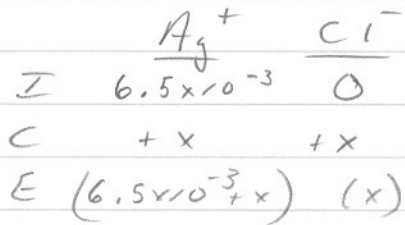 Ag⁺ Cl⁻
I 6.5x10⁻³ 0
C + x + x
E (6.5x10⁻³ + x) (x)